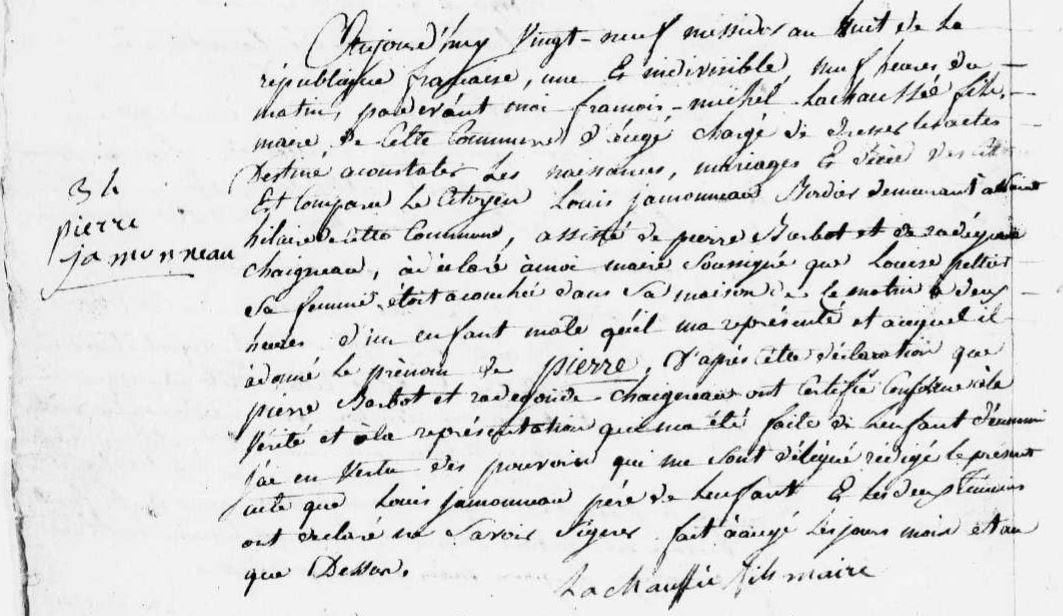 Aujourd'huy Vingt-neuf messidor an huit de la
république française, une Et indivisible, neuf heures du
matin, pardevant moi françois-michel Lachaussée fils,
maire de Cette Commune d'augé chargé de dresser les actes
Destiné a constater Les naissances, mariages Et décès des
Est Comparu Le Citoyen Louis jamonneau Bordier demeurant a Saint
hilaire de Cette Commune, assisté de pierre Barbot et de radégonde
chaigneau, a déclaré à moi maire Soussigné que Louise pelletier
Sa femme étoit acouchée dans Sa maison de le matin à deux
heures d'un enfant mâle qu'il ma représenté et auquel il
a donné Le prénom de pierre. D'après Cette déclaration que
pierre Barbot et radegonde chaigneau ont Certifié Conforme à la
Vérité et à la représentation qui ma été faite de Lenfant dénommé
j'ai en Vertu des pouvoirs qui me Sont délégué rédigé le présent
acte que Louis jamonneau père de Lenfant Et Les deux Témoins
ont déclaré ne Savoir Signer. fait à augé Les jours mois et an
que Dessus.
Lachaussée fils maire
pierre
jamonneau